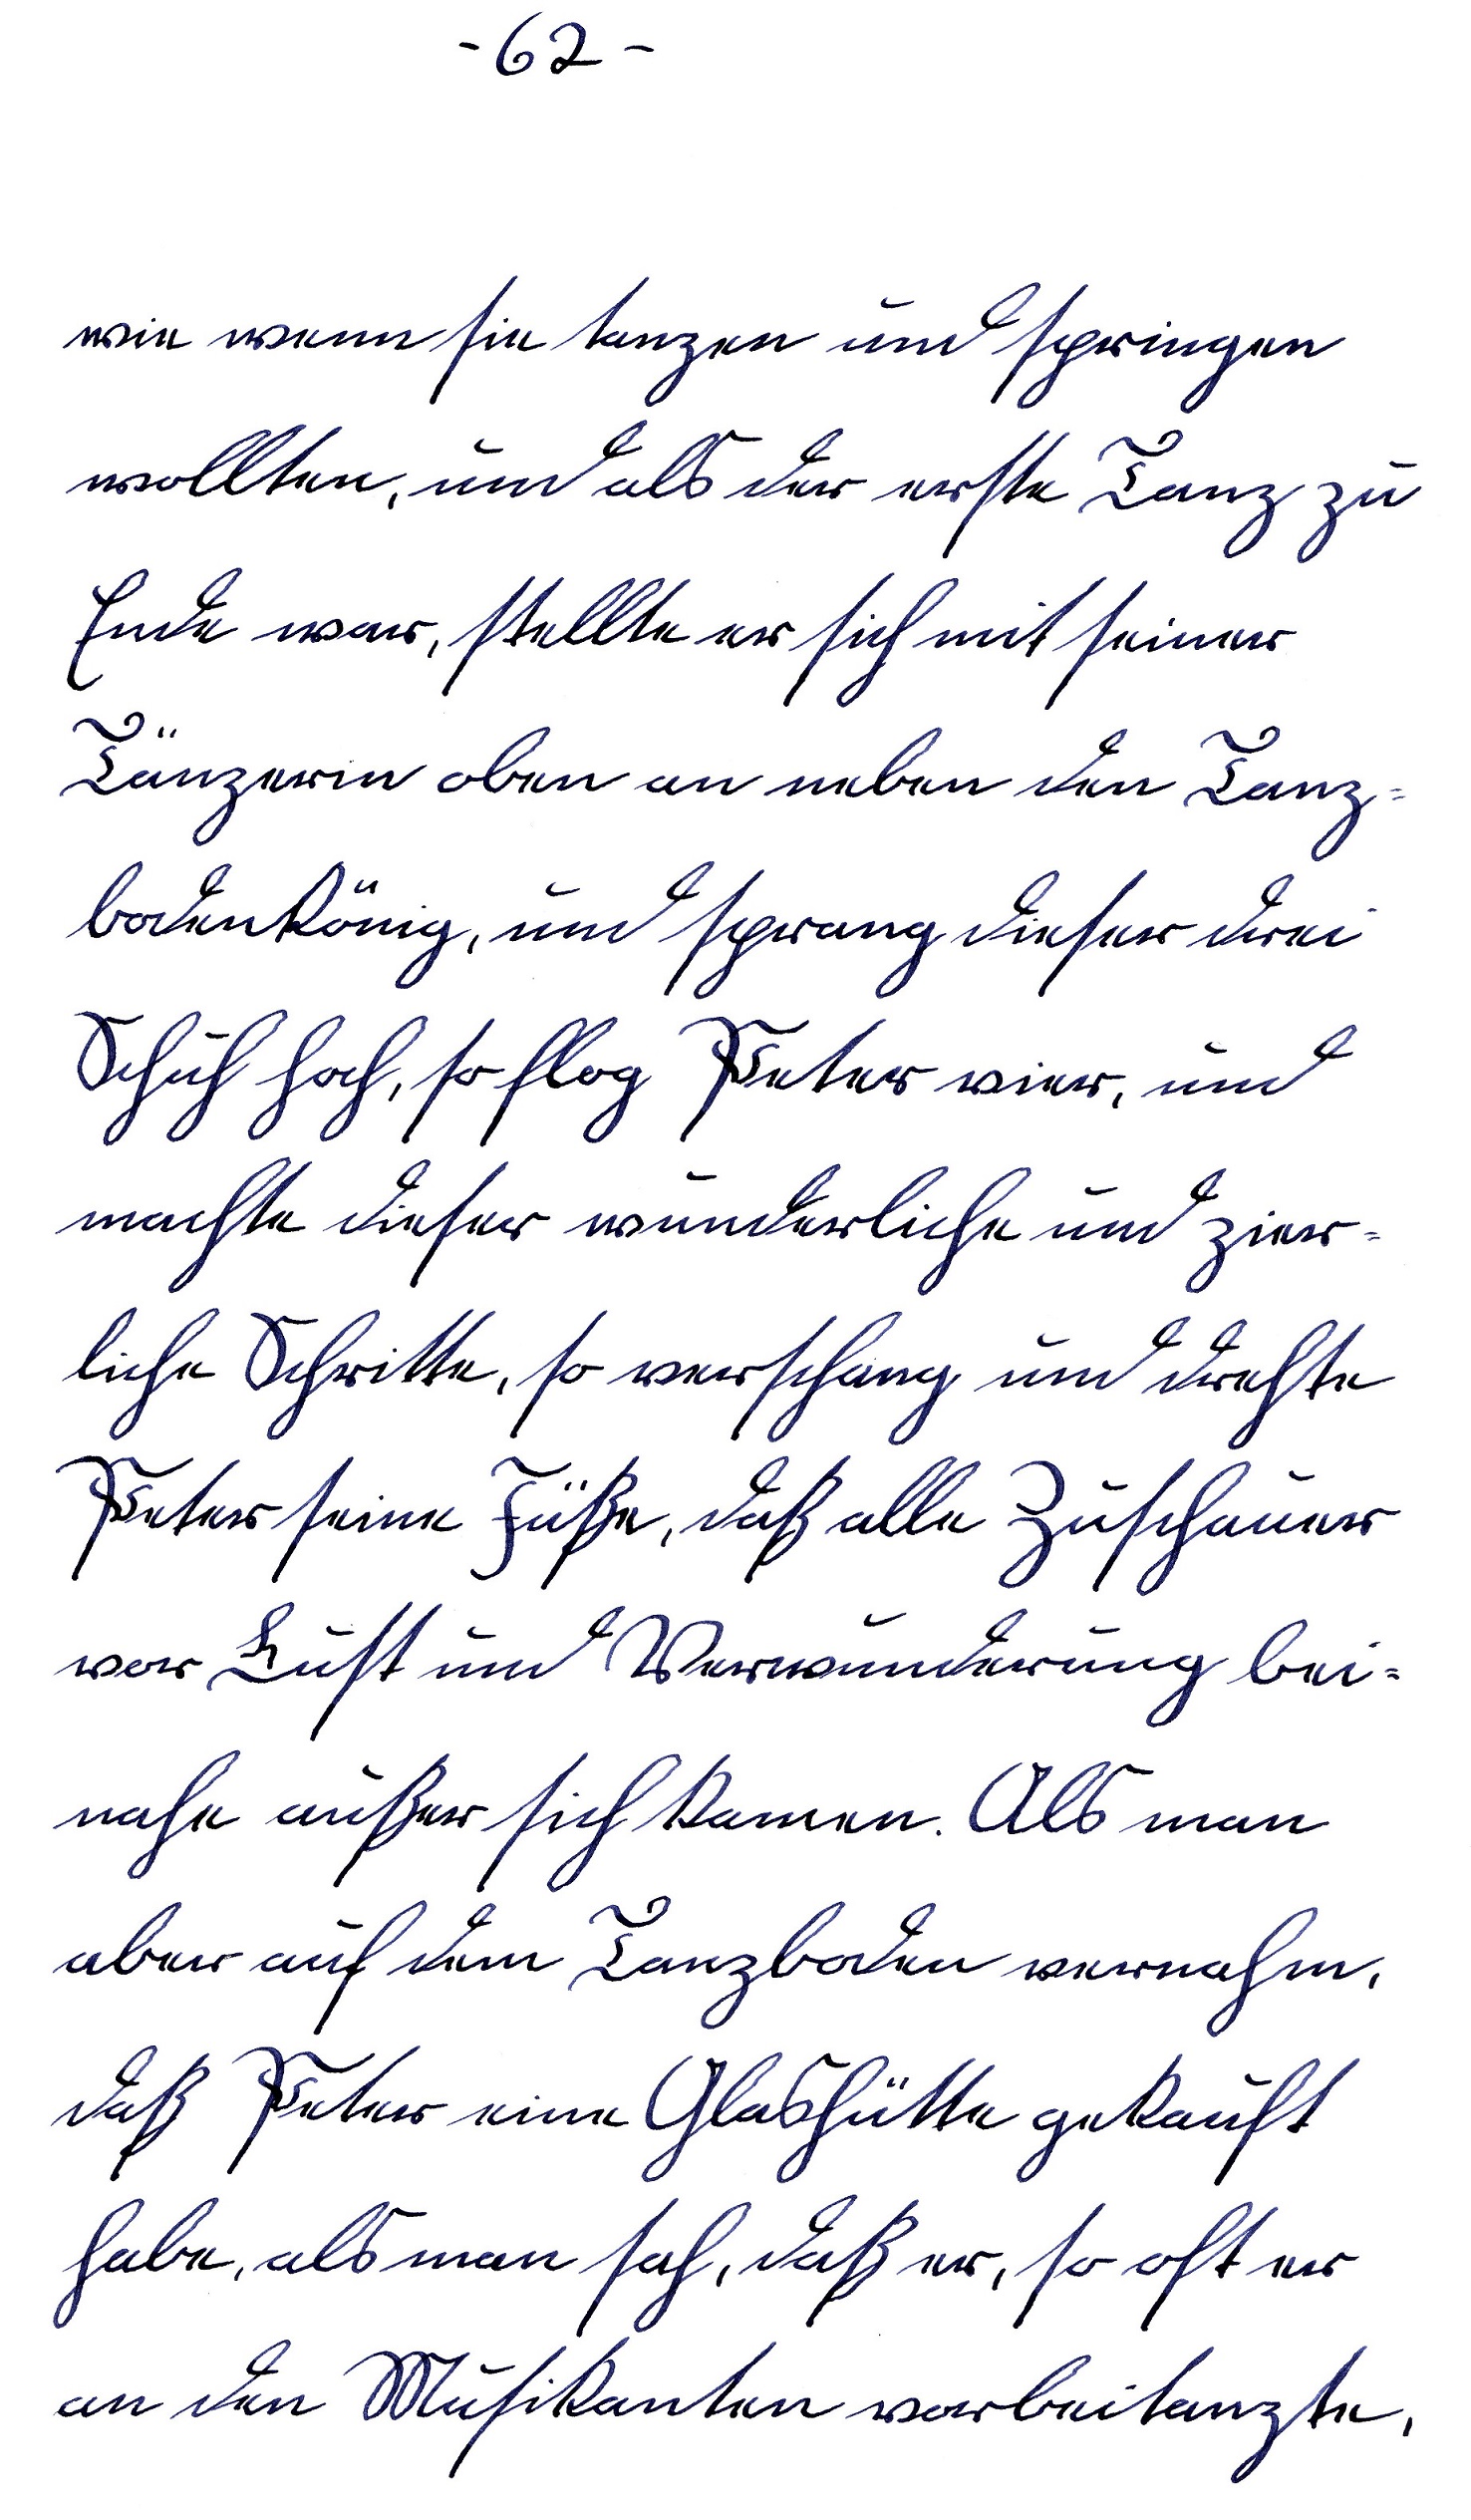 - 62 -
wie wenn sie tanzen und springen
wollten, und als der erste Tanz zu
Ende war, stellte er sich mit seiner
Tänzerin oben an neben den Tanz=
bodenkönig, und sprang dieser drei
Schuh hoch, so flog Peter vier, und
machte dieser wunderliche und zier=
liche Schritte, so verschlang und drehte
Peter seine Füße, daß alle Zuschauer
vor Lust und Verwunderung bei=
nahe außer sich kamen. Als man
aber auf dem Tanzboden vernahm,
daß Peter eine Glashütte gekauft
habe, als man sah, daß er, so oft er
an den Musikanten vorbeitanzte,